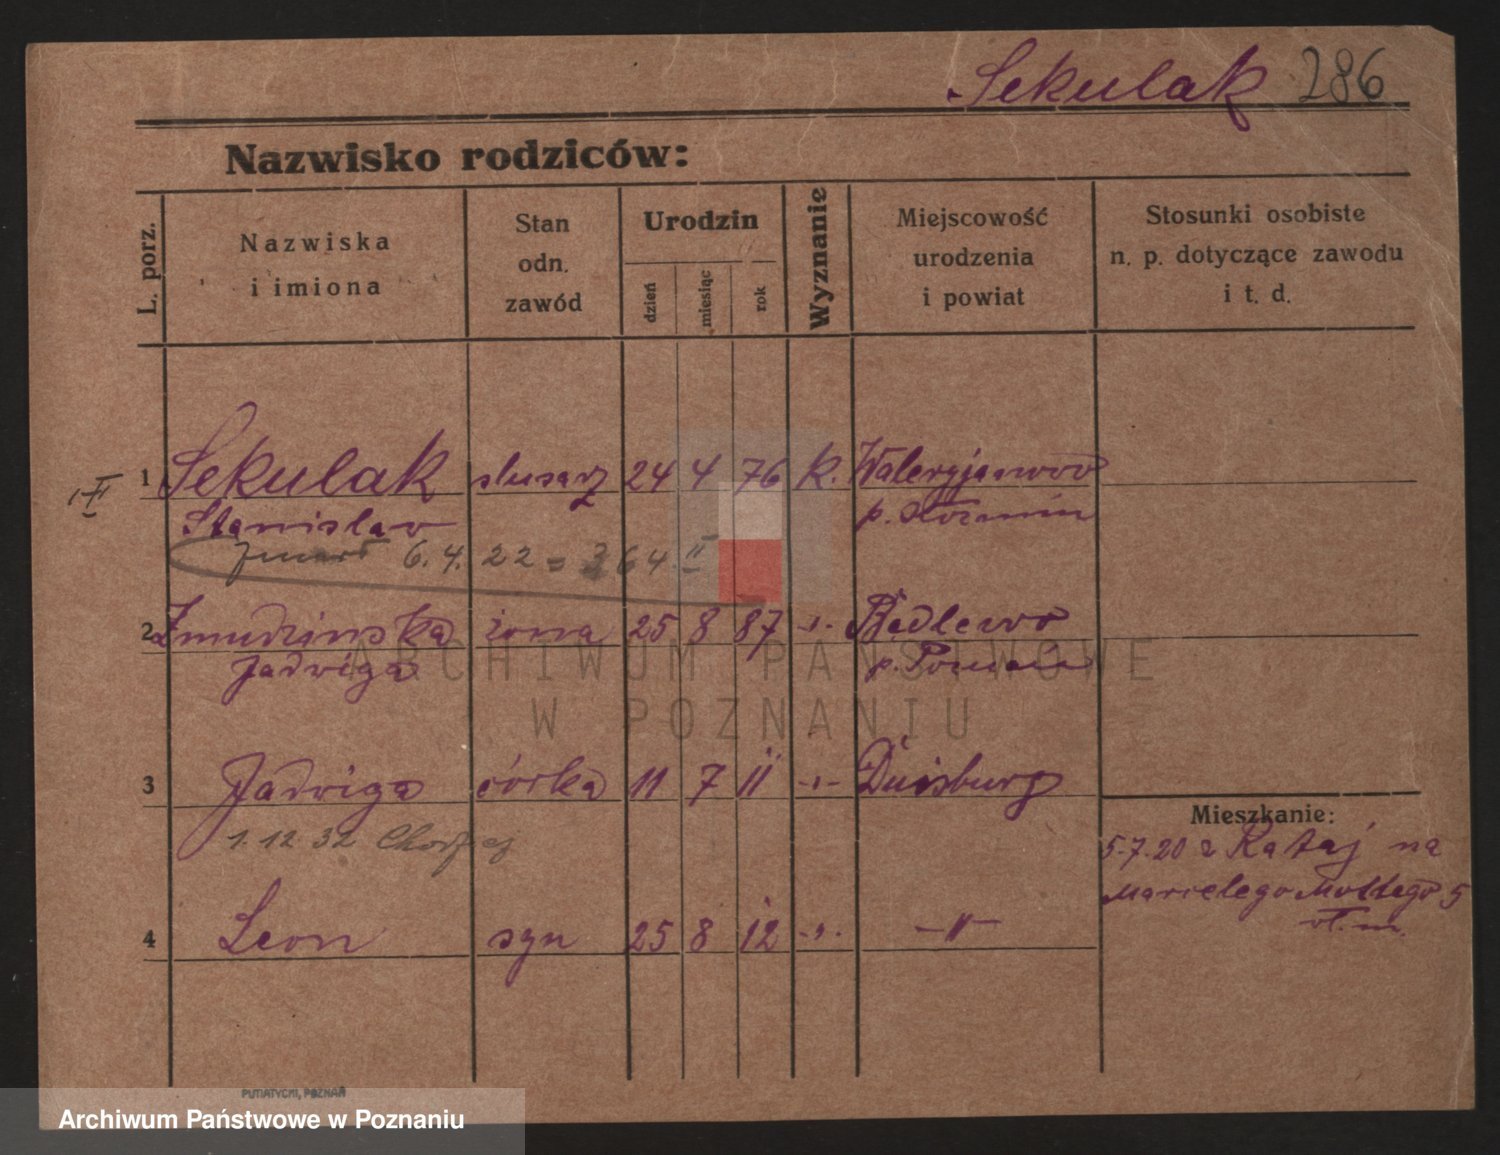 Sekulak 286
Nazwisko rodziców:
L. porz.
Nazwiska
i imiona
Stan
odn.
zawód
Urodzin
dzień
miesiąc
rok
Wyznanie
Miejscowość
urodzenia
i powiat
Stosunki osobiste
n. p. dotyczące zawodu
i t. d.
1 Sekulak ślusarz 24 4 76 k. Waleryjanowo
Stanisław p. Koźmin
zmarł 6.4.22 = 364 II
2 Żmudzińska żona 25 8 87 -"- Będlewo
Jadwiga p. Poznań
3 Jadwiga córka 11 7 11 -"- Duisburg
1.12.32
4 Leon syn 25 8 12 -"- -"-
Mieszkanie:
5.7.20 z Rataj na
Marcelego Mottego 5
wł. m.
PUTIATYCKI, POZNAŃ
ARCHIWUM PAŃSTWOWE
W POZNANIU
Archiwum Państwowe w Poznaniu